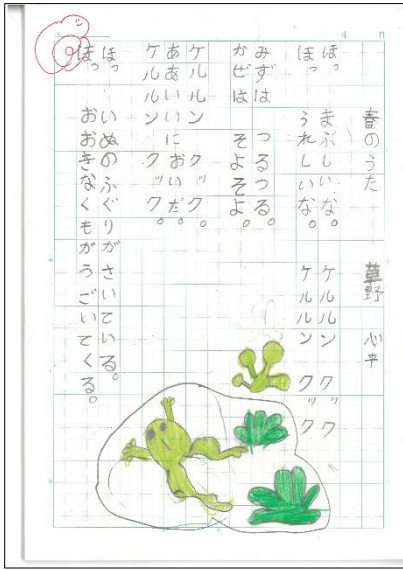 春のうた 草野 心平
ほっ まぶしいな。
ほっ うれしいな。
みずは つるつる。
かぜは そよそよ。
ケルルン クック。
ああいいにおいだ。
ケルルン クック。
ほっ いぬのふぐりがさいている。
ほっ おおきなくもがうごいてくる。
ケルルン クック
ケルルン クック